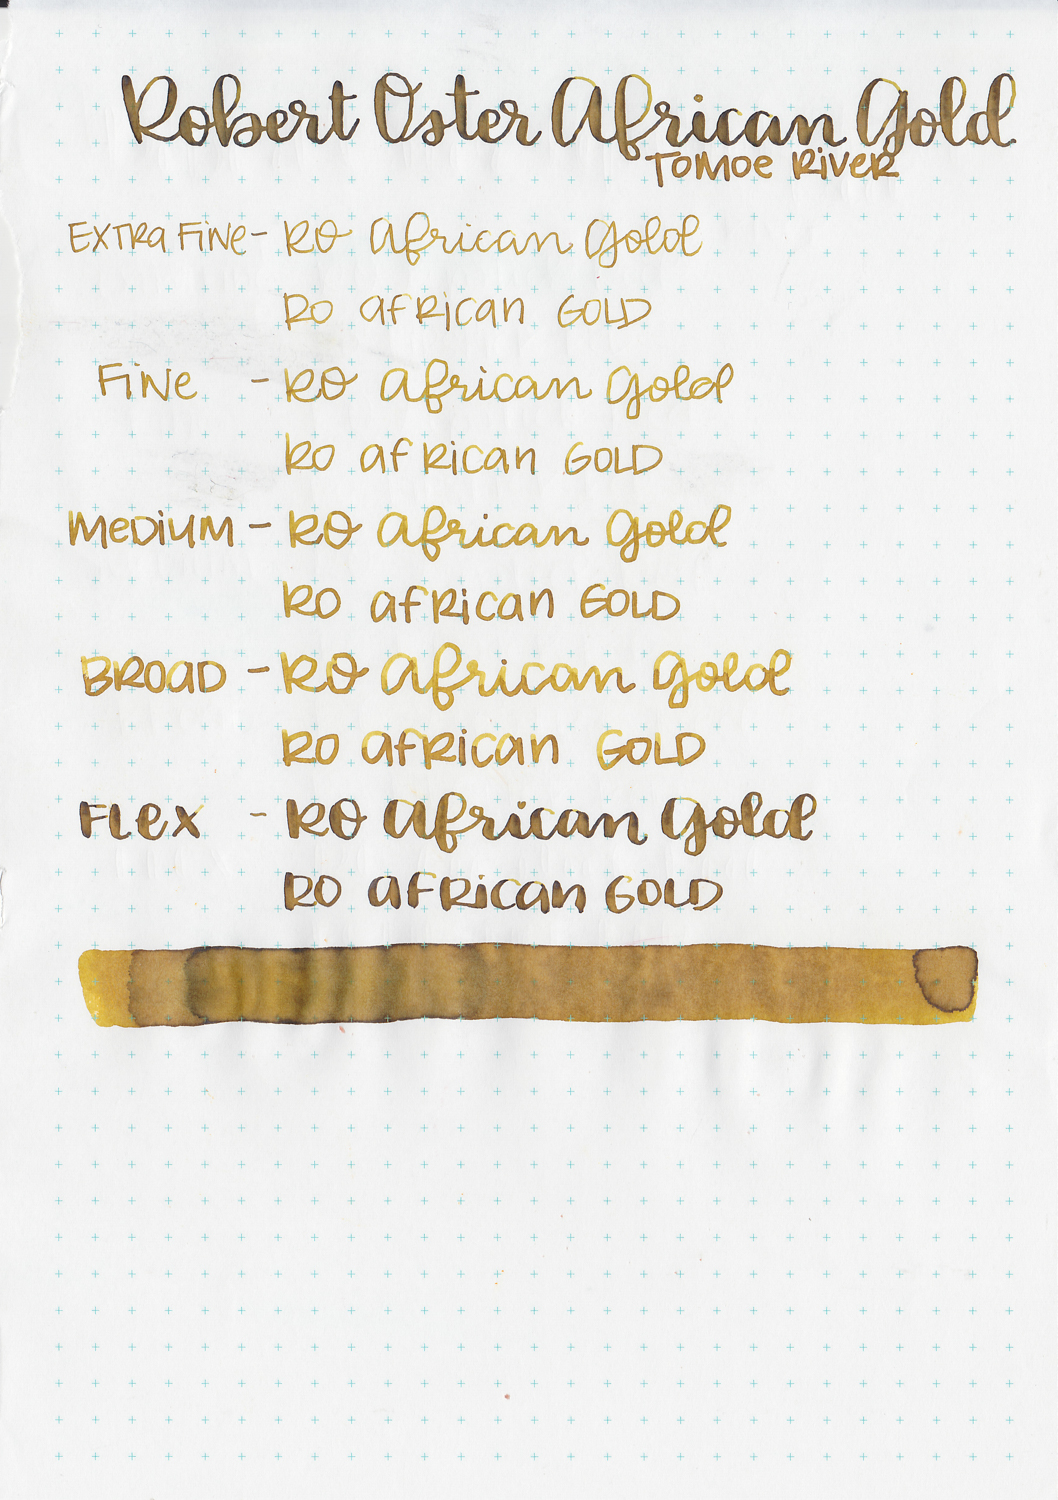 Robert Oster African Gold
Tomoe River
Extra Fine - RO African Gold
RO African Gold
Fine - RO African Gold
RO African Gold
Medium - RO African Gold
RO African Gold
Broad - RO African Gold
RO African Gold
Flex - RO African Gold
RO African Gold